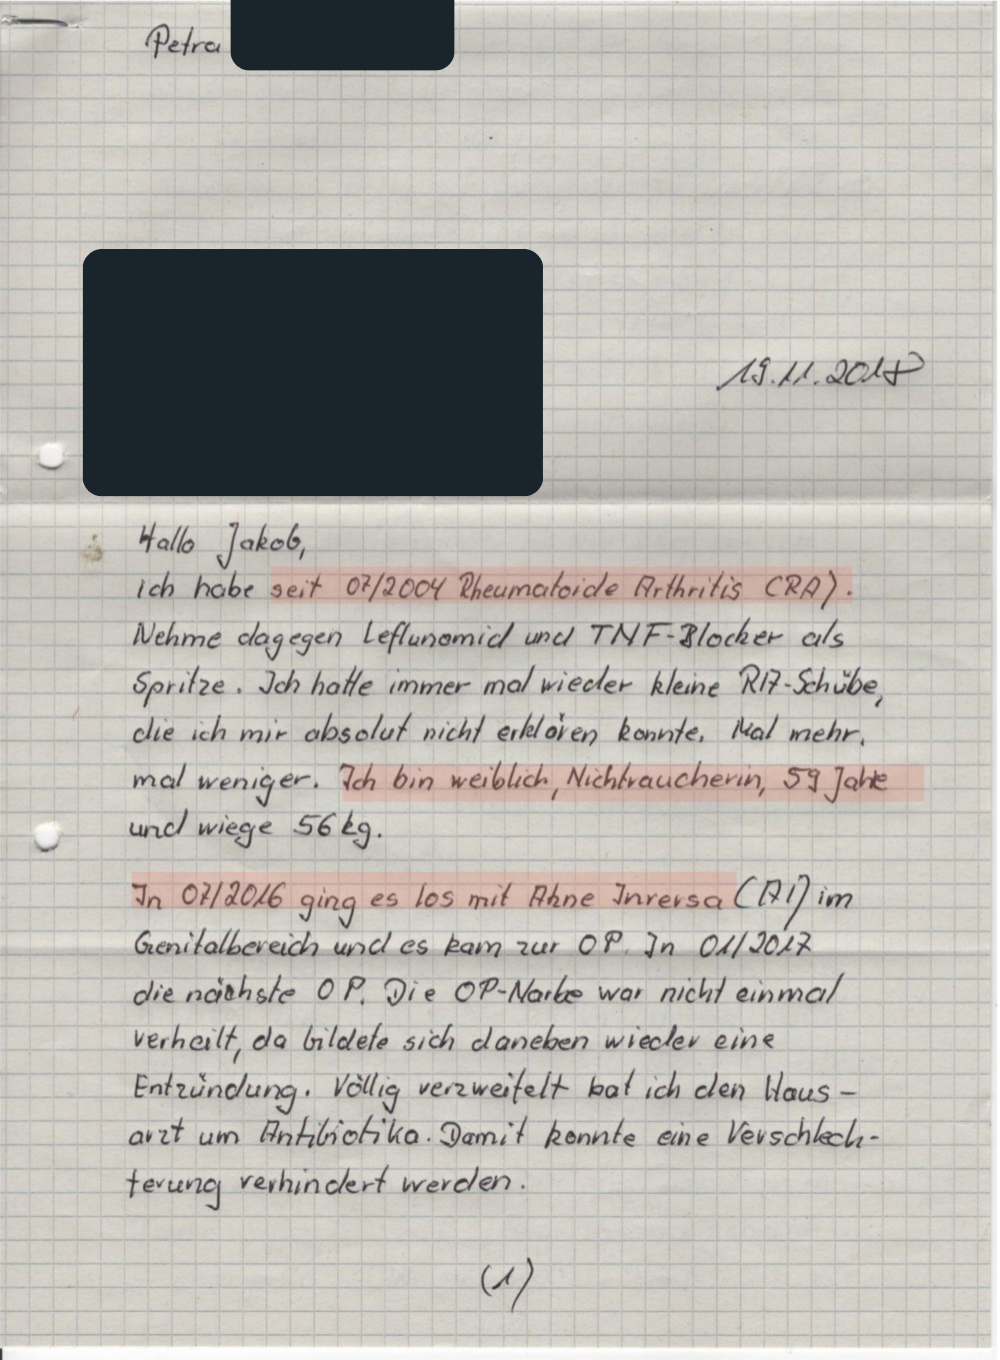 Petra
19.11.2018
Hallo Jakob,
ich habe seit 07/2004 Rheumatoide Arthritis (RA).
Nehme dagegen Leflunomid und TNF-Blocker als
Spritze. Ich hatte immer mal wieder kleine RA-Schübe,
die ich mir absolut nicht erklären konnte. Mal mehr,
mal weniger. Ich bin weiblich, Nichtraucherin, 59 Jahre
und wiege 56 kg.
In 07/2016 ging es los mit Akne Inversa (AI) im
Genitalbereich und es kam zur OP. In 01/2017
die nächste OP. Die OP-Narbe war nicht einmal
verheilt, da bildete sich daneben wieder eine
Entzündung. Völlig verzweifelt bat ich den Haus-
arzt um Antibiotika. Damit konnte eine Verschlech-
terung verhindert werden.
(1)